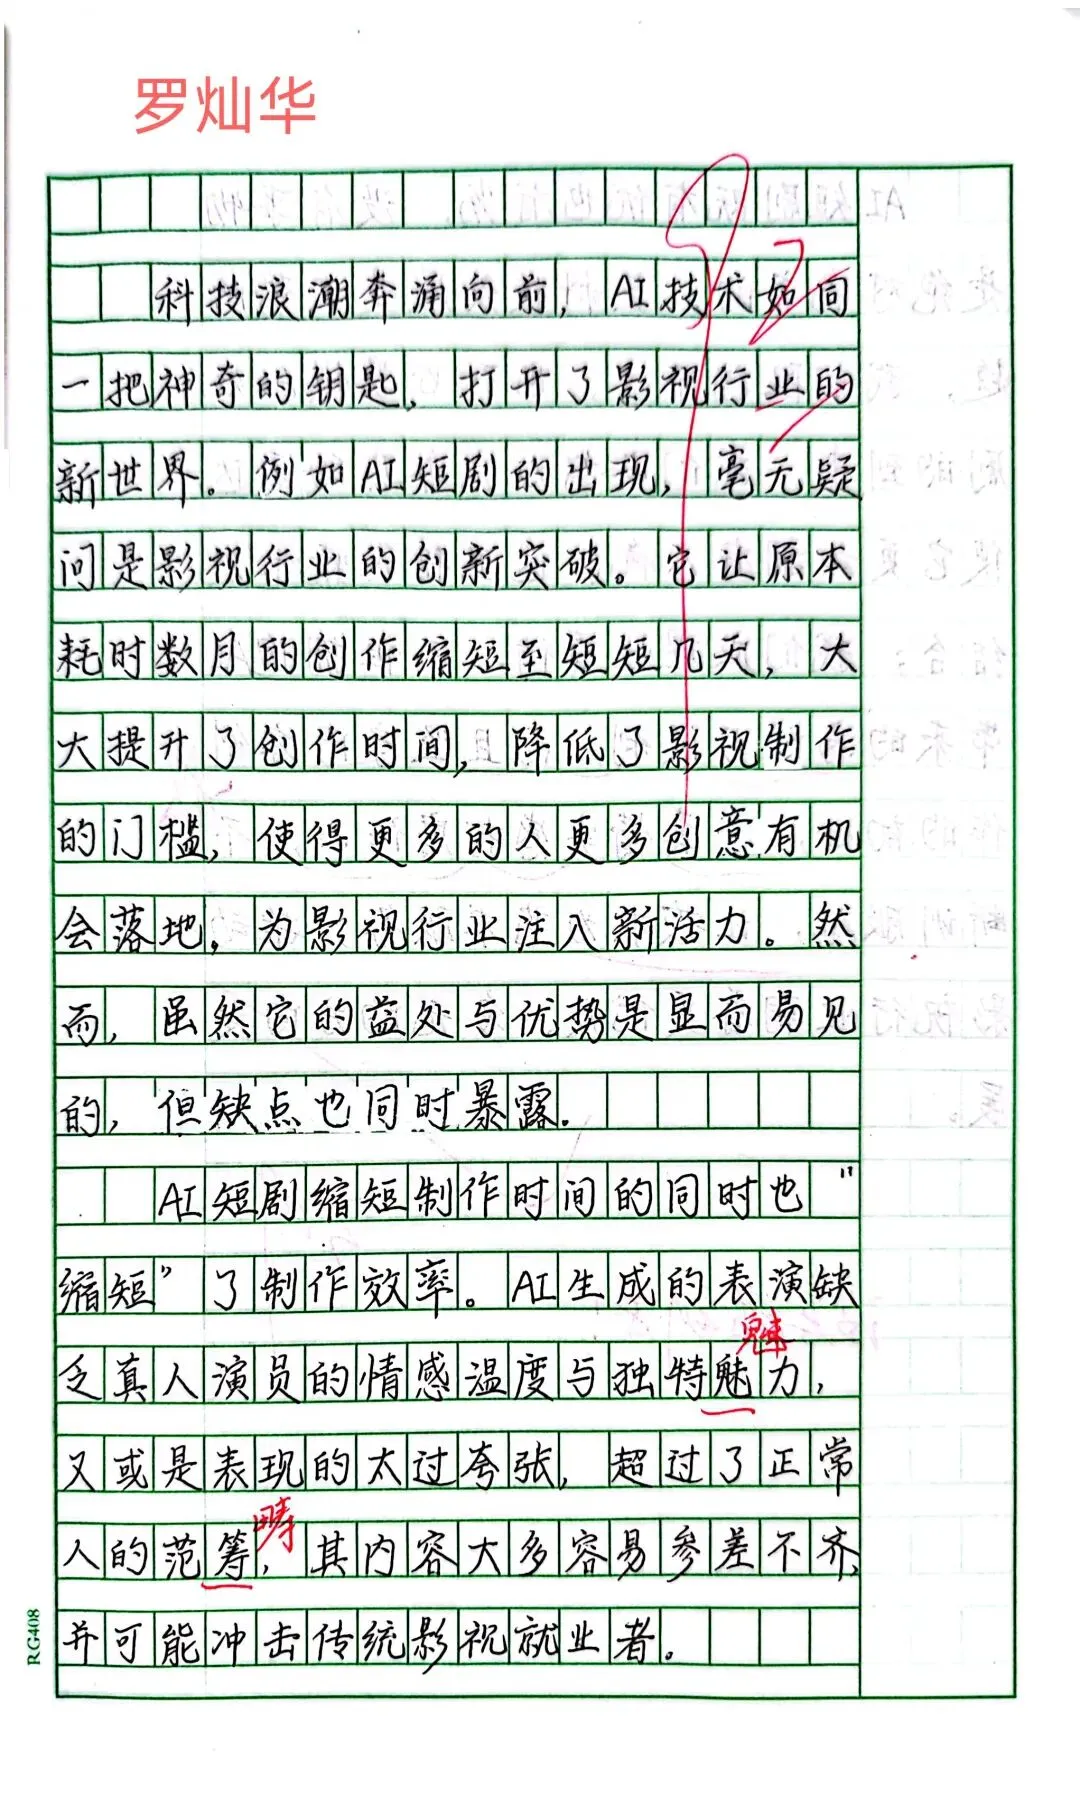 罗灿华
科技浪潮奔涌向前，AI技术如同
一把神奇的钥匙，打开了影视行业的
新世界。例如AI短剧的出现，毫无疑
问是影视行业的创新突破。它让原本
耗时数月的创作缩短至短短几天，大
大提升了创作时间，降低了影视制作
的门槛，使得更多的人更多创意有机
会落地，为影视行业注入新活力。然
而，虽然它的益处与优势是显而易见
的，但缺点也同时暴露.
AI短剧缩短制作时间的同时也“
缩短”了制作效率。AI生成的表演缺
魅
乏真人演员的情感温度与独特魅力，
又或是表现的太过夸张，超过了正常
畴
人的范筹，其内容大多容易参差不齐、
并可能冲击传统影视就业者。
RG408